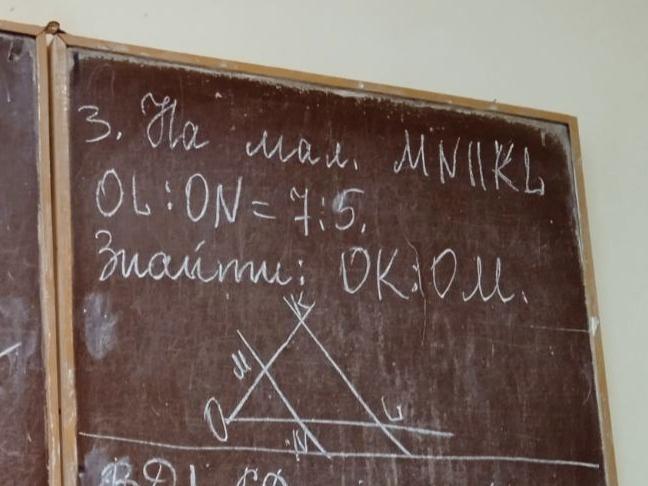 3. На мал. MN||KL
OL:ON = 7:5.
Знайти: OK:OM.
K
M
O
L
N